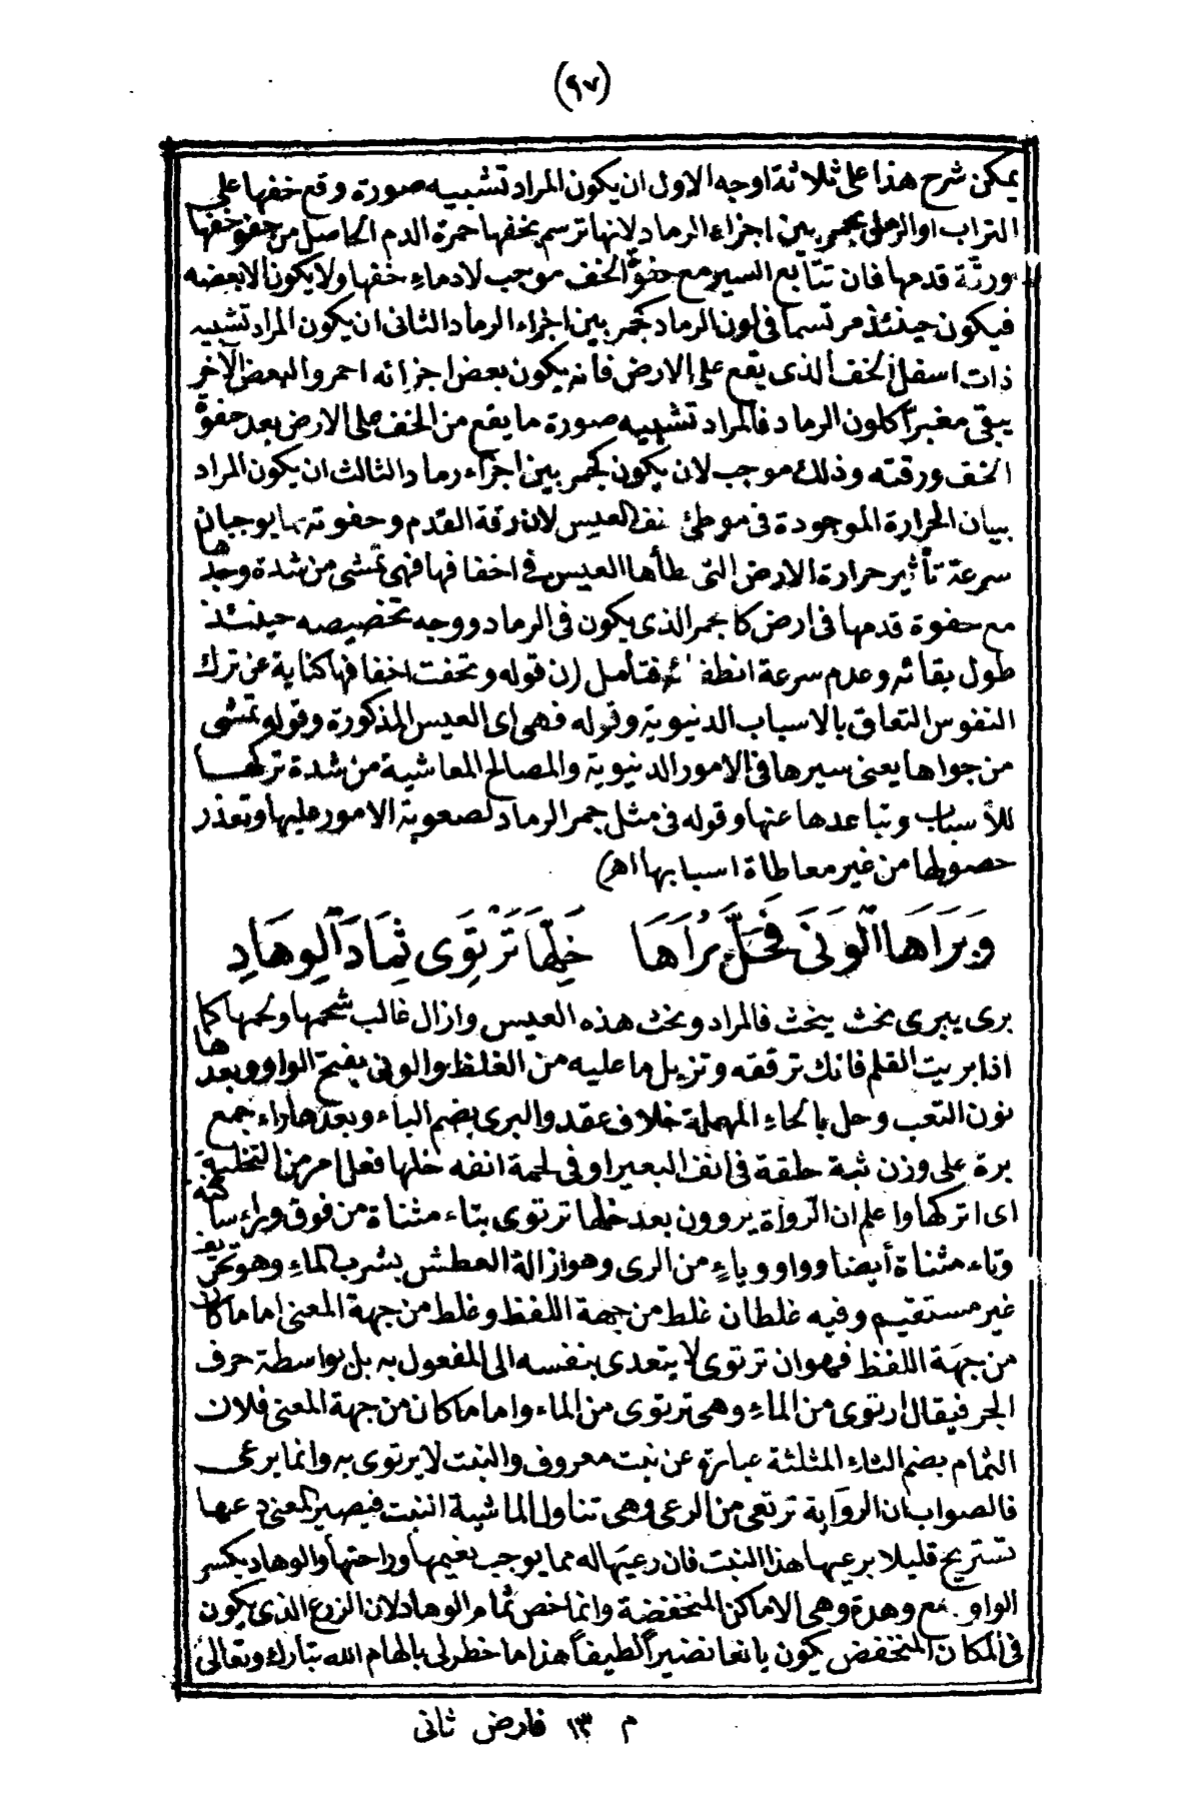 (٩٧)
يمكن شرح هذا على ثلاثة اوجه الاول ان يكون المراد تشبيه صورة وقع خفها على
التراب او الرمل بجمر بين اجزاء الرماد لانها ترسم بخفها حمرة الدم الحاصل من حفو خفها
ورقة قدمها فان تتابع السير مع حفوة الخف موجب لادماء خفها ولا يكون الا بعضه
فيكون حينئذ مرتسما فى لون الرماد كجمر بين اجزاء الرماد الثانى ان يكون المراد تشبيه
ذات اسفل الخف الذى يقع على الارض فانه يكون بعض اجزائه احمر والبعض الآخر
يبقى مغبرّا كلون الرماد فالمراد تشبيه صورة ما يقع من الخف على الارض بعد حفوة
الخف ورقته وذلك موجب لان يكون كجمر بين اجزاء رماد الثالث ان يكون المراد
بيان الحرارة الموجودة فى موطئ خف العيس لان رقة القدم وحفوته بها يوجبان
سرعة تأثير حرارة الارض التى تطأها العيس فى اخفافها فهى تمشى من شدة وجدها
مع حفوة قدمها فى ارض كالجمر الذى يكون فى الرماد ووجه تخصيصه حينئذ
طول بقائه وعدم سرعة انطفائه فتأمل (ن قوله وتحفت اخفافها كناية عن ترك
النفوس التعلق بالاسباب الدنيوية وقوله فهى اى العيس المذكورة وقوله تمشى
من جواها يعنى سيرها فى الامور الدنيوية والمصالح المعاشية من شدة تركها
للأسباب وتباعدها عنها وقوله فى مثل جمر الرماد لصعوبة الامور عليها وتعذر
حصولها من غير معاطاة اسبابها اهـ)
وَبَرَاهَا الْوَنَى فَحُلَّ بُرَاهَا خَلِّهَا تَرْتَوِى ثِمَادَ الْوِهَادِ
برى يبرى نحث ينحث فالمراد ونحث هذه العيس وازال غالب شحمها ولحمها كما
اذا بريت القلم فانك ترققه وتزيل ما عليه من الغلظ والونى بفتح الواو وبعدها
نون التعب وحل بالحاء المهملة خلاف عقد والبرى بضم الباء وبعدها راء جمع
برة على وزن ثبة حلقة فى انف البعير او فى لحمة انفه خلها فعل امر من التخلية
اى اتركها واعلم ان الرواة يروون بعد خلها ترتوى بتاء مثناة من فوق وراء ساكنة
وتاء مثناة أيضا وواو وياءٍ من الرى وهو ازالة العطش بشرب الماء وهو تحريف
غير مستقيم وفيه غلطان غلط من جهة اللفظ وغلط من جهة المعنى اما ما كان
من جهة اللفظ فهو ان ترتوى لا يتعدى بنفسه الى المفعول به بل بواسطة حرف
الجر فيقال ارتوى من الماء وهى ترتوى من الماء واما ما كان من جهة المعنى فلان
الثمام بضم الثاء المثلثة عبارة عن نبت معروف والنبت لا يرتوى به وانما يرعى
فالصواب ان الرواية ترتعى من الرعى وهى تناول الماشية النبت فيصير المعنى دعها
تستريح قليلا برعيها هذا النبت فان رعيها له مما يوجب نعيمها وراحتها والوهاد بكسر
الواو جمع وهدة وهى الاماكن المنخفضة وانما خص ثمام الوهاد لان الزرع الذى يكون
فى المكان المنخفض يكون يانعا نضيراً لطيفاً هذا ما خطر لى بالهام الله تبارك وتعالى
م ١٣ فارض ثانى